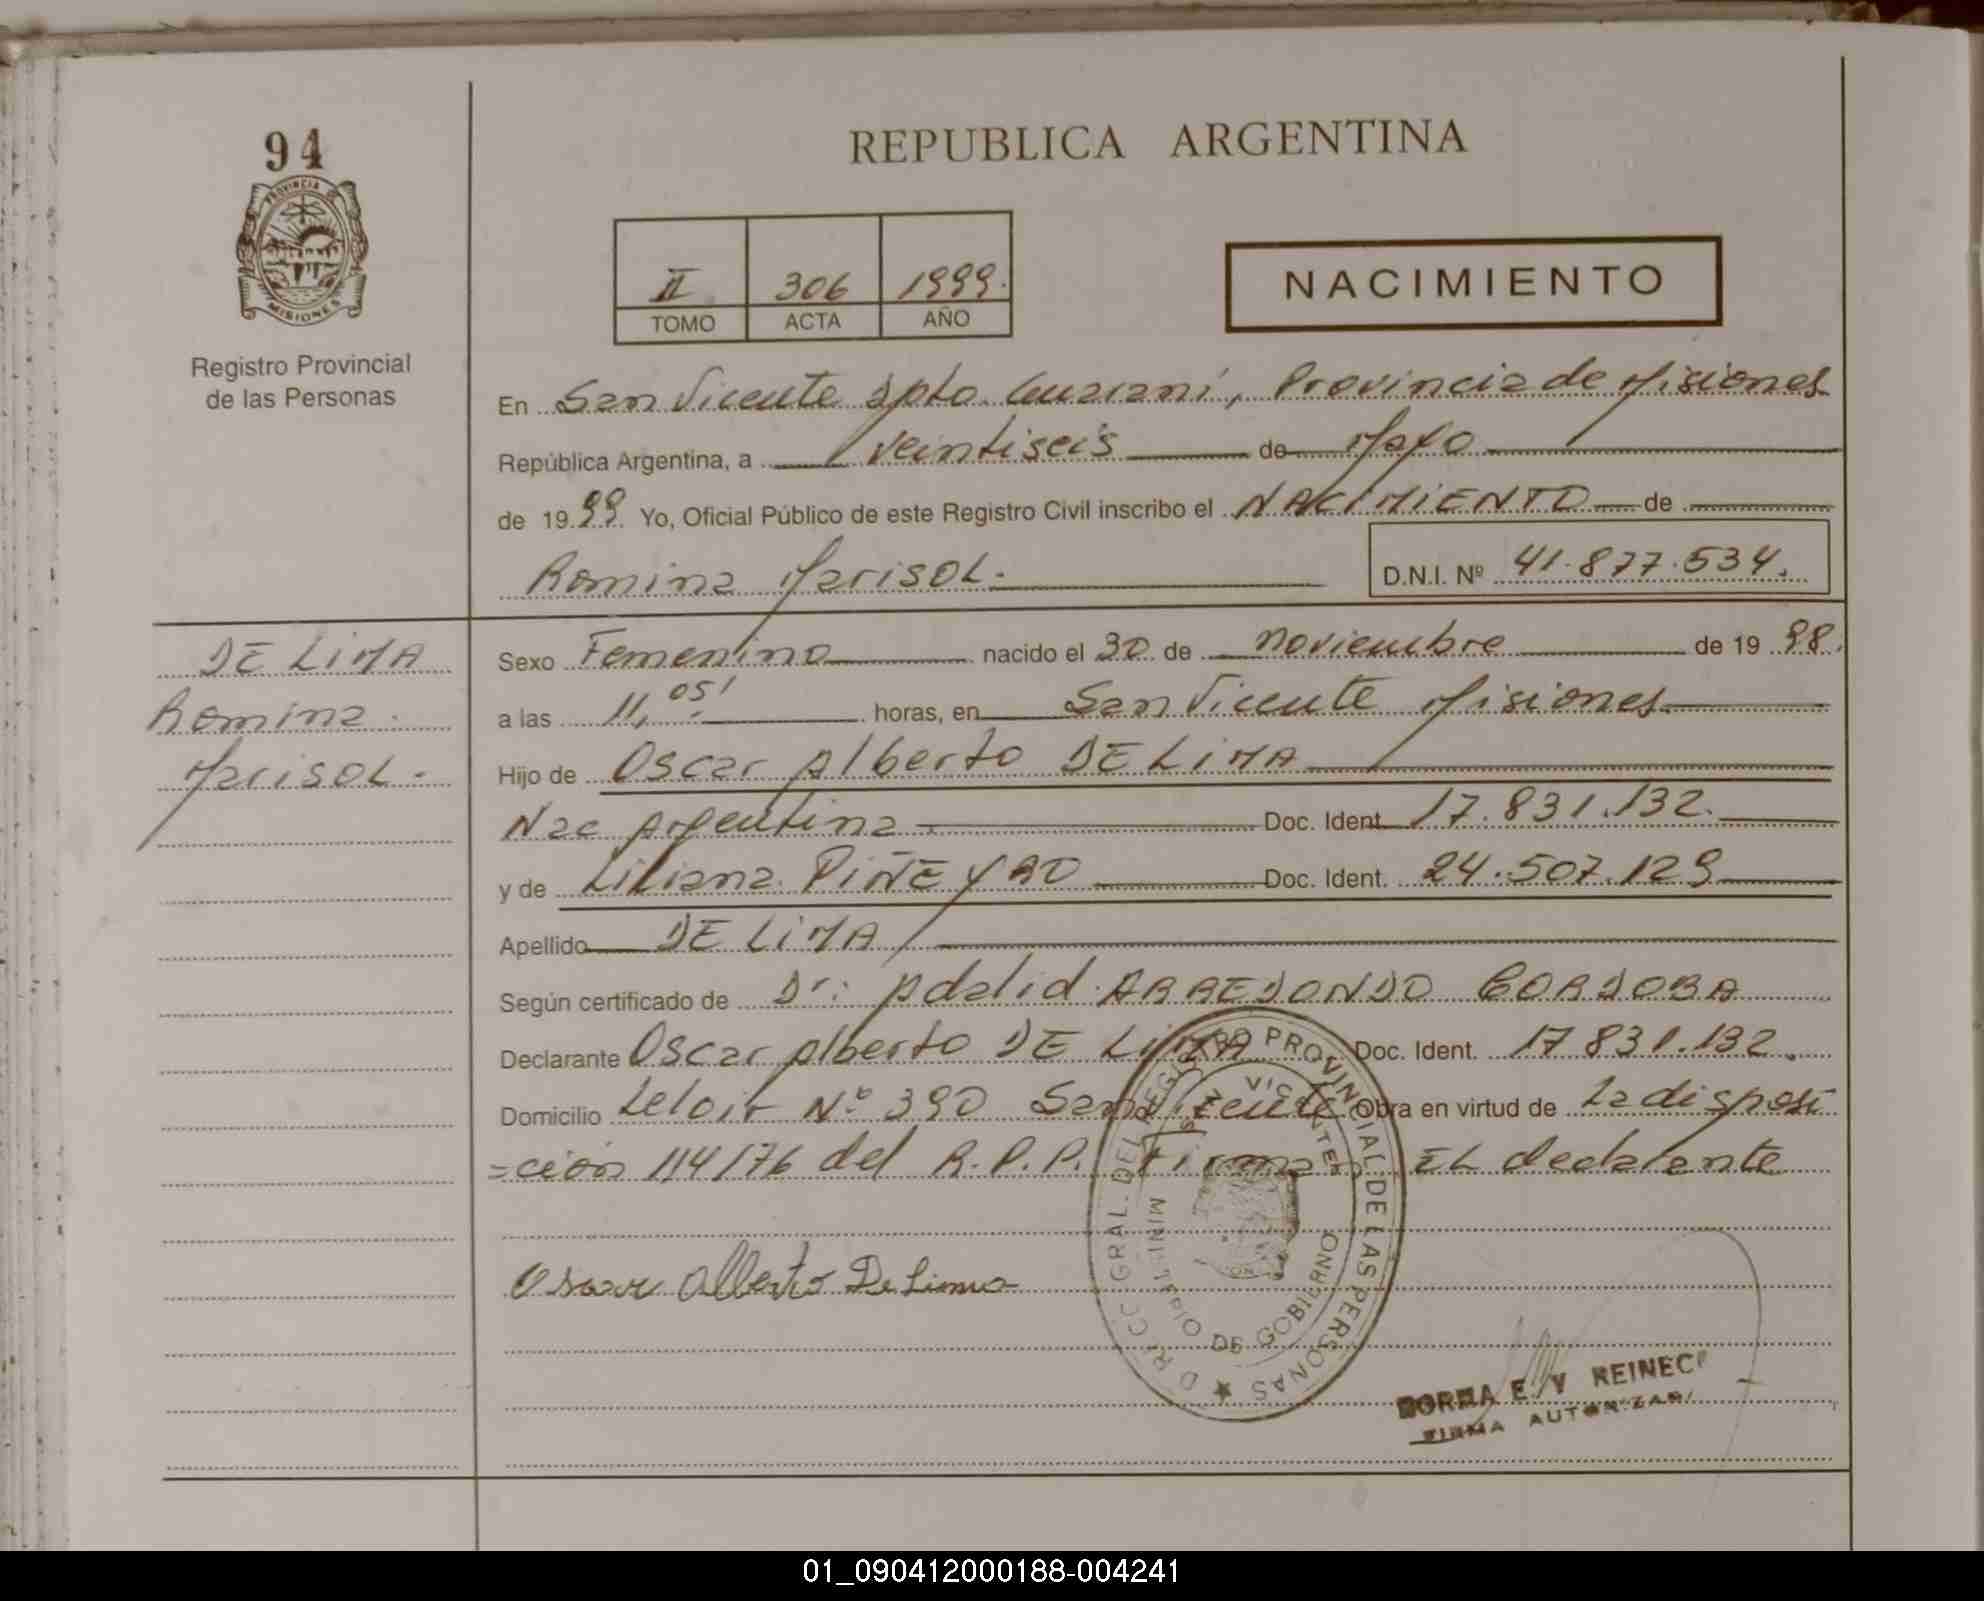 94
PROVINCIA DE
MISIONES
Registro Provincial
de las Personas
REPUBLICA ARGENTINA
II 306 1999.
TOMO ACTA AÑO
NACIMIENTO
En San Vicente Dpto. Guarani, Provincia de Misiones
República Argentina, a veintiseis de Mayo
de 1999 Yo, Oficial Público de este Registro Civil inscribo el NACIMIENTO de
Romina Marisol.
D.N.I. Nº 41.877.534.
DE LIMA
Romina
Marisol.
Sexo Femenino nacido el 30 de Noviembre de 1998.
a las 11,05' horas, en San Vicente Misiones
Hijo de Oscar Alberto DE LIMA
Nac Argentina Doc. Ident. 17.831.132.
y de Liliana PIÑEYRO Doc. Ident. 24.507.129
Apellido DE LIMA
Según certificado de Dr: Adalid ARREDONDO CORDOBA
Declarante Oscar Alberto DE LIMA Doc. Ident. 17831.132.
Domicilio Leloir Nº 390 San Vicente Obra en virtud de La disposi
=ción 114/76 del R.P.P. Firma EL declarante
Oscar Alberto De Lima
DIRECC GRAL. DEL REGISTRO PROVINCIAL DE LAS PERSONAS
MINISTERIO DE GOBIERNO
SAN VICENTE
NORMA E. V REINEC
FIRMA AUTORIZADA
01_090412000188-004241